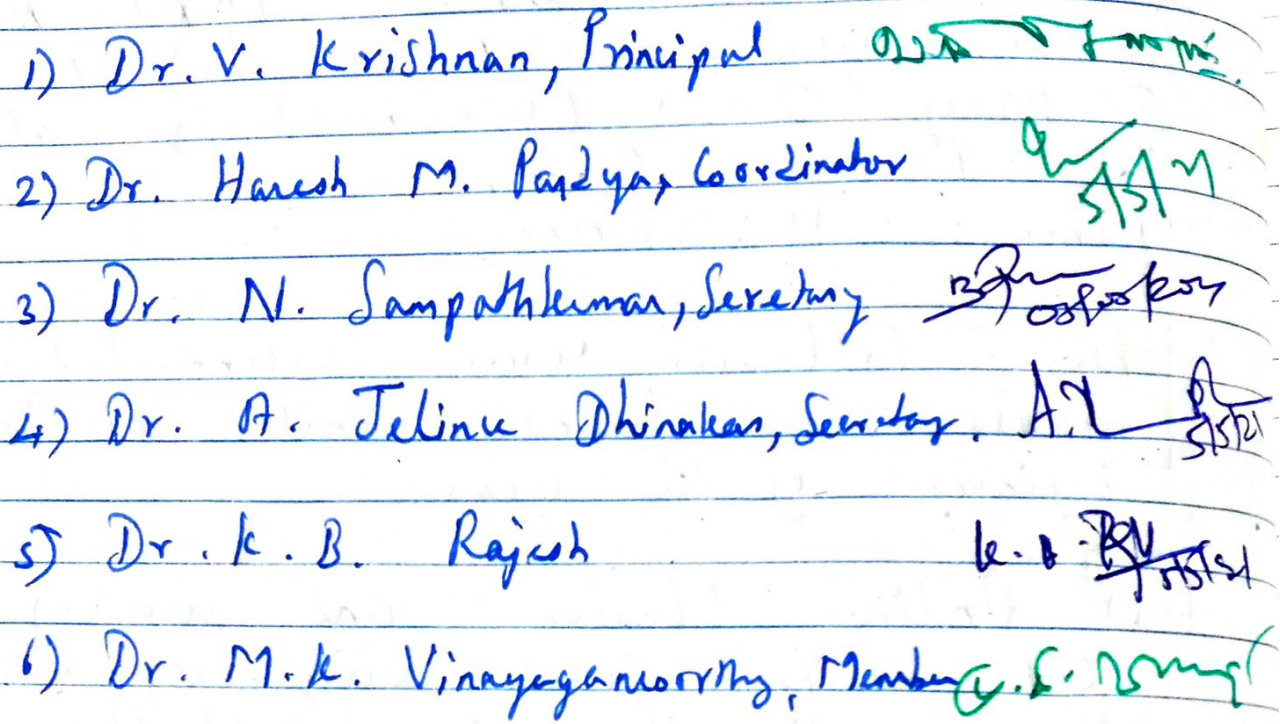 1) Dr. V. Krishnan, Principal
2) Dr. Haresh M. Pandya, Coordinator 5/5/21
3) Dr. N. Sampathkumar, Seretary
4) Dr. A. Jelinu Dhinakar, Secretary. 5/5/21
5) Dr. K. B. Rajesh 5/5/21
6) Dr. M.K. Vinayagamoorthy, Member